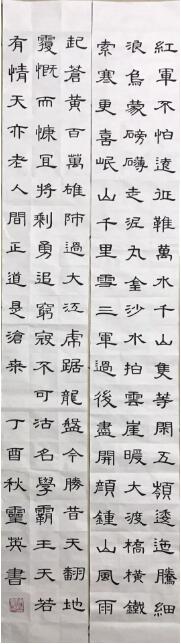 紅軍不怕遠征難萬水千山隻等閑五嶺逶迤騰細
浪烏蒙磅礴走泥丸金沙水拍雲崖暖大渡橋橫鐵
索寒更喜岷山千里雪三軍過後盡開顏鍾山風雨
起蒼黃百萬雄師過大江虎踞龍盤今勝昔天翻地
覆慨而慷宜將剩勇追窮寇不可沽名學霸王天若
有情天亦老人間正道是滄桒 丁酉秋靈英書